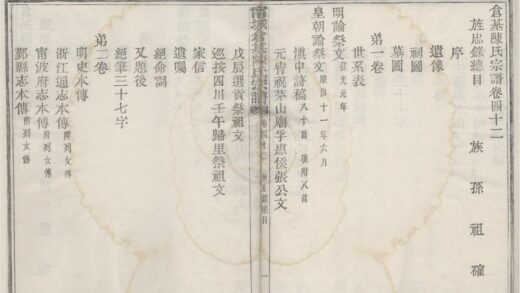 倉基陳氏宗譜卷四十二
旌忠錄總目 族孫祖確
序
遺像
祠圖
墓圖
第一卷
世系表
明諭祭文 弘光元年
皇朝諭祭文 順治十一年六月
滇中詩稿 八十首 後附八首
元宵祝茅山廟孚惠侯張公文
甯城倉基陳氏宗譜 卷四十二 一
戊辰選貢祭祖文
巡按四川壬午歸里祭祖文
家信
遺囑
絕命詞
又題後
絕筆三十七字
第二卷
明史本傳
浙江通志本傳 附列女傳
甯波府志本傳 附列女傳
鄞縣志本傳 附列女傳